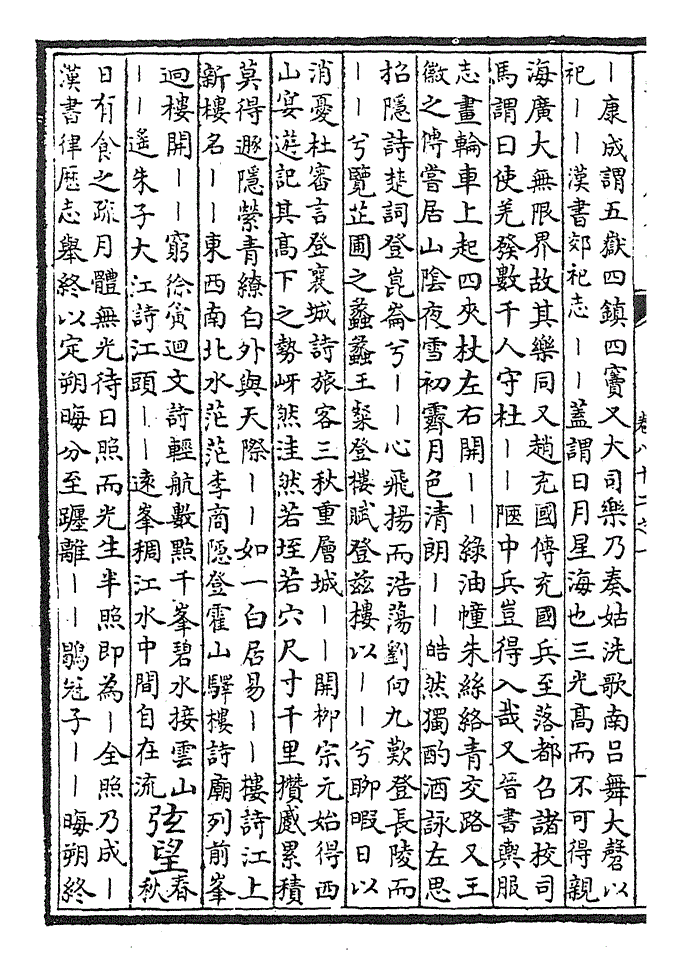 ｜康成謂五嶽四鎮四竇又大司樂乃奏姑洗歌南呂舞大磬以
祀｜｜漢書郊祀志｜｜蓋謂日月星海也三光高而不可得親
海廣大無限界故其樂同又趙充國傳充國兵至落都召諸校司
馬謂曰使羌發數千人守杜｜｜陿中兵豈得入哉又晉書輿服
志畫輪車上起四夾杖左右開｜｜綠油幢朱絲絡青交路又王
徽之傳嘗居山陰夜雪初霽月色清朗｜｜皓然獨酌酒詠左思
招隱詩楚詞登崑崙兮｜｜心飛揚而浩蕩劉向九歎登長陵而
｜｜兮覽芷圃之蠡蠡王粲登樓賦登兹樓以｜｜兮聊暇日以
消憂杜審言登襄城詩旅客三秋重層城｜｜開栁宗元始得西
山宴遊記其髙下之勢岈然洼然若垤若穴尺寸千里攢蹙累積
莫得遯隱縈青繚白外與天際｜｜如一白居易｜｜樓詩江上
新樓名｜｜東西南北水茫茫李商隠登霍山驛樓詩廟列前峯
迥樓開｜｜窮徐寅迴文詩輕航數點千峯碧水接雲山
｜｜遙朱子大江詩江頭｜｜遠峯稠江水中間自在流
弦望
春
秋
日有食之疏月體無光待日照而光生半照即為｜全照乃成｜
漢書律歴志舉終以定朔晦分至躔離｜｜鶡冠子｜｜晦朔終
卷八十二之一